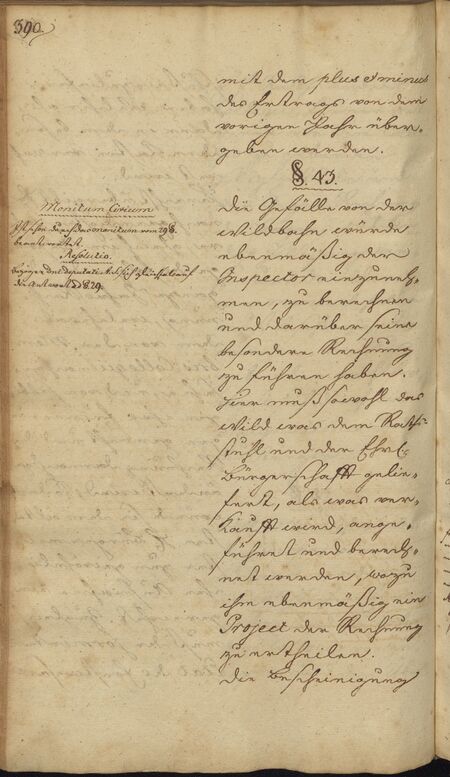 390.
mit dem plus et minus
des Ertrags von dem
vorigen Jahr über-
geben werden.
§. 43.
Die Gefälle von der
Wildbahn würde
ebenmäßig der
Inspector einzuneh-
men, zu berechnen
und darüber seine
besondere Rechnung
zu führen haben.
Hier muß sowohl das
Wild was dem Rath-
stuhl und der Ehrl.
Bürgerschafft gelie-
fert, als was ver-
kaufft wird, ange-
führet und berech-
net werden, wozu
ihm ebenmäßig ein
Project der Rechnung
zu ertheilen.
Die Bescheinigung
Monitum Civium
Ist schon durch das monitum vom 29 §.
beantwortet.
Resolutio.
deputati sich gleichfals auf
die Antwort §. 29.